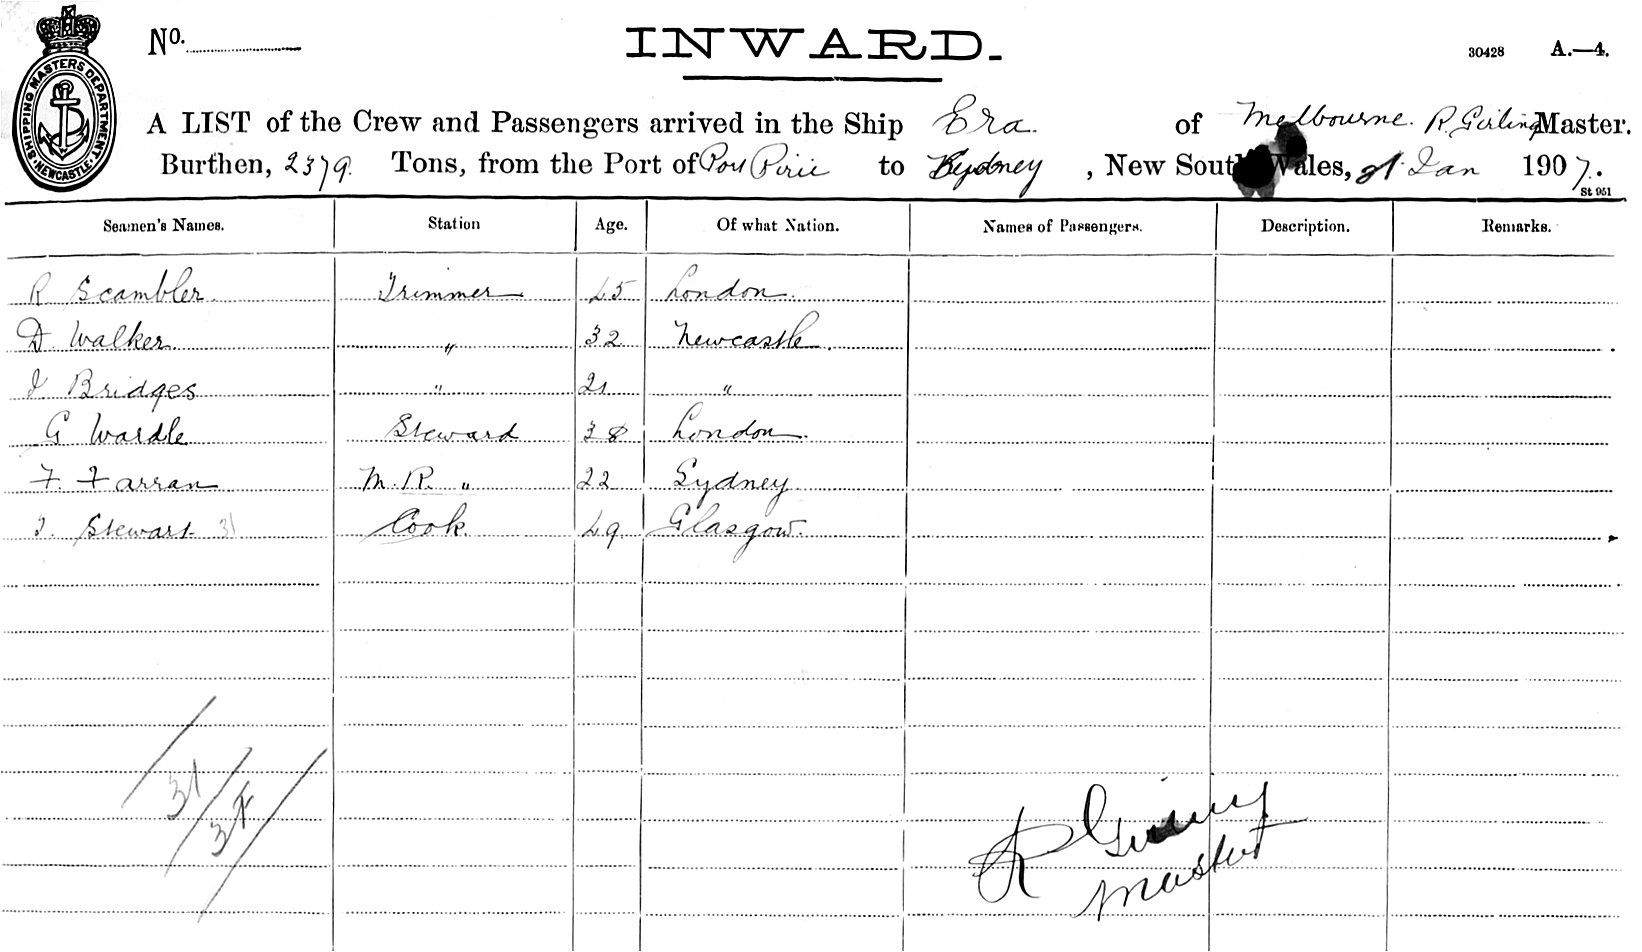 No.
INWARD.
30428 A.—4.
SHIPPING MASTERS DEPARTMENT. NEWCASTLE.
A LIST of the Crew and Passengers arrived in the Ship Era. of Melbourne. R. Girling Master.
Burthen, 2379. Tons, from the Port of Pirie to Sydney, New South Wales, Jan 1907.
St 951
Seamen's Names. Station Age. Of what Nation. Names of Passengers. Description. Remarks.
R Scambler. Trimmer 45 London.
D. Walker. " 32 Newcastle.
J Bridges " 21 "
G Wardle Steward 38 London.
F. Farran M. R. " 22 Sydney
J. Stewart 31 Cook. 49. Glasgow.
31
37
R Girling
Master